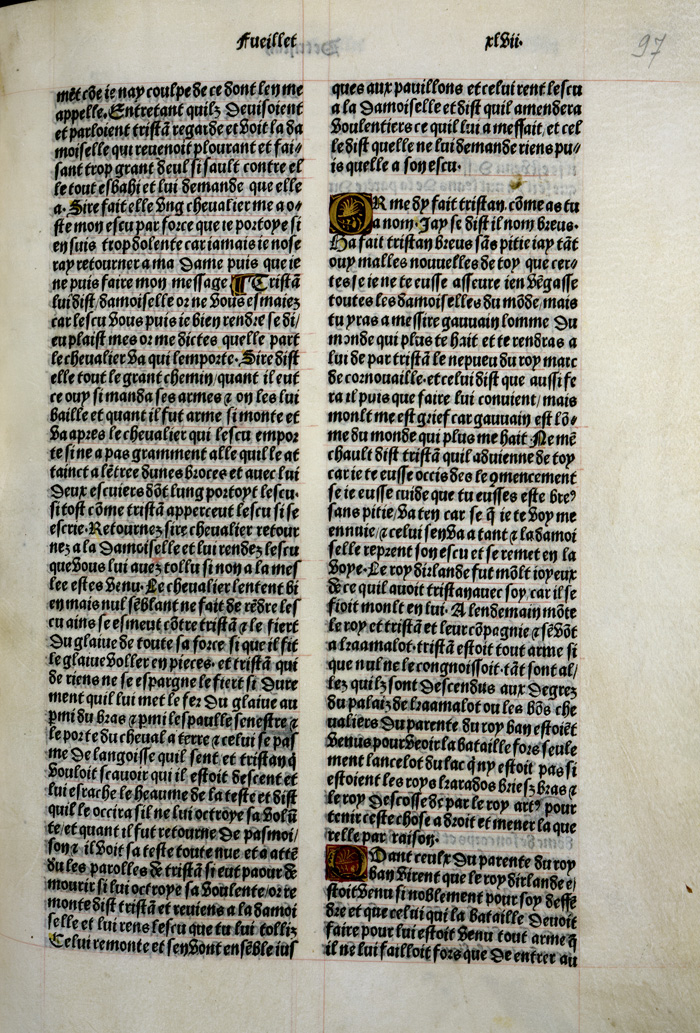 Fueillet xlvii.
97
mēt cōe ie nay coulpe de ce dont len me
appelle. Entretant quilz deuisoient
et parloient tristā regarde et voit la da
moiselle qui reuenoit plourant et fai⸗
sant trop grant deul si sault contre el
le tout esbahi et lui demande que elle
a. Sire fait elle vng cheualier me a o⸗
ste mon escu par force que ie portoye si
en suis trop dolente car iamais ie nose
ray retourner a ma dame puis que ie
ne puis faire mon message ¶ Tristā
lui dist damoiselle or ne vous esmaiez
car lescu vous puis ie bien rendre se di/
eu plaist mes or me dictes quelle part
le cheualier va qui lemporte. Sire dist
elle tout le grant chemin/ quant il eut
ce ouy si manda ses armes ⁊ on les lui
baille et quant il fut arme si monte et
va apres le cheualier qui lescu empor
te si ne a pas gramment alle quil le at
tainct a lētree dunes broces et auec lui
deux escuiers dōt lung portoyt lescu.
si tost cōme tristā apperceut lescu si se
escrie. Retournez sire cheualier retour
nez a la damoiselle et lui rendez lescu
que vous lui auez tollu si non a la mes
lee estes venu. Le cheualier lentent bi
en mais nul sēblant ne fait de rēdre les
cu ains se esmeut cōtre tristā ⁊ le fiert
du glaiue de toute sa force si que il fit
le glaiue voller en pieces. et tristā qui
de riens ne se espargne le fiert si dure
ment quil lui met le fer du glaiue au
ꝑmi du bras ⁊ ꝑmi lespaulle senestre ⁊
le porte du cheual a terre ⁊ celui se pas
me de langoisse quil sent et tristan q̄
vouloit scauoir qui il estoit descent et
lui esrache le heaume de la teste et dist
quil le occira sil ne lui octroye sa volū
te/ et quant il fut retourne de pasmoi/
son ⁊ il voit sa teste toute nue et a attē
du les parolles de tristā si eut paour de
mourir si lui octroye sa voulente/ or re
monte dist tristā et reuiens a la damoi
selle et lui rens lescu que tu lui tolliz
Celui remonte et sen vont ensēble ius
ques aux pauillons et celui rent lescu
a la damoiselle et dist quil amendera
voulentiers ce quil lui a meffait/ et cel
le dist quelle ne lui demande riens pu⸗
is quelle a son escu.
OR me dy fait tristan. cōme as tu
a nom. Jay se dist il nom breus.
Ha fait tristan breus sās pitie iay tāt
ouy malles nouuelles de toy que cer⸗
tes se ie ne te eusse asseure ien vēgasse
toutes les damoiselles du mōde/ mais
tu yras a messire gauuain lomme du
monde qui plus te hait et te rendras a
lui de par tristā le nepueu du roy marc
de cornouaille. et celui dist que aussi fe
ra il puis que faire lui conuient/ mais
monlt me est grief car gauuain est lō⸗
me du monde qui plus me hait Ne mē
chault dist tristā quil aduienne de toy
car ie te eusse occis des le ꝯmencement
se ie eusse cuide que tu eusses este breꝰ
sans pitie/ va ten car se q̄ ie te voy me
ennuie/ ⁊ celui sen va a tant ⁊ la damoi
selle reprent son escu et se remet en la
voye. Le roy dirlande fut mōlt ioyeux
de ce quil auoit tristan auec soy car il se
fioit monlt en lui. A lendemain mōte
le roy et tristā et leur cōpagnie ⁊ se vōt
a kraamalot. tristā estoit tout arme si
que nul ne le congnoissoit. tāt sont al/
lez quilz sont descendus aux degrez
du palaiz de kraamalot ou les bōs che
ualiers du parente du roy ban estoiēt
venus pour veoir la bataille fors seule
ment lancelot du lac q̄ ny estoit pas si
estoient les roys karados briesz bras ⁊
le roy descosse de par le roy artꝰ pour
tenir ceste chose a droit et mener la que
relle par raison.
Quant ceulx du parente du roy
ban virent que le roy dirlande e/
stoit venu si noblement pour soy deffē
dre et que celui qui la bataille deuoit
faire pour lui estoit venu tout arme q̄
il ne lui failloit fors que de entrer au